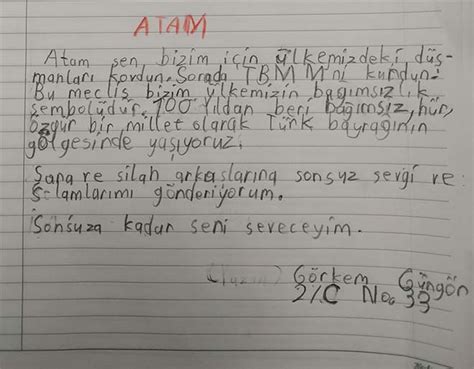 ATAM
Atam sen, bizim için ülkemizdeki, düş-
manları kovdun. Sorada TBMM'ni kurdun.
Bu meclis bizim ülkemizin bağımsızlık
sembolüdür. 100 Yıldan beri bağımsız, hür,
özgür bir millet olarak Türk bayrağının
gölgesinde yaşıyoruz.
Sana ve silah arkaslarına sonsuz sevgi ve
Selamlarımı gönderiyorum.
Sonsuza kadar seni seveceyim.
Görkem Güngön
2/C No: 33